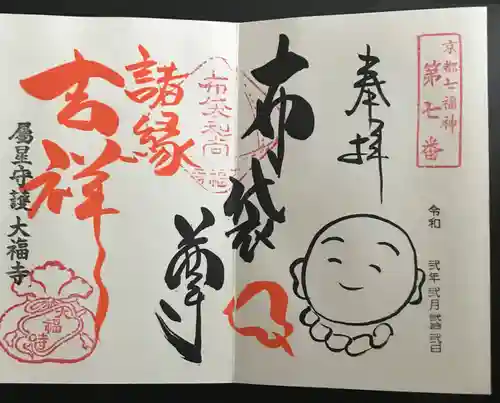 京都七福神
第七番
奉拝
令和 弐年弐月弐拾弐日
布袋尊
布袋和尚
諸縁
吉祥
属星守護 大福寺
大福寺